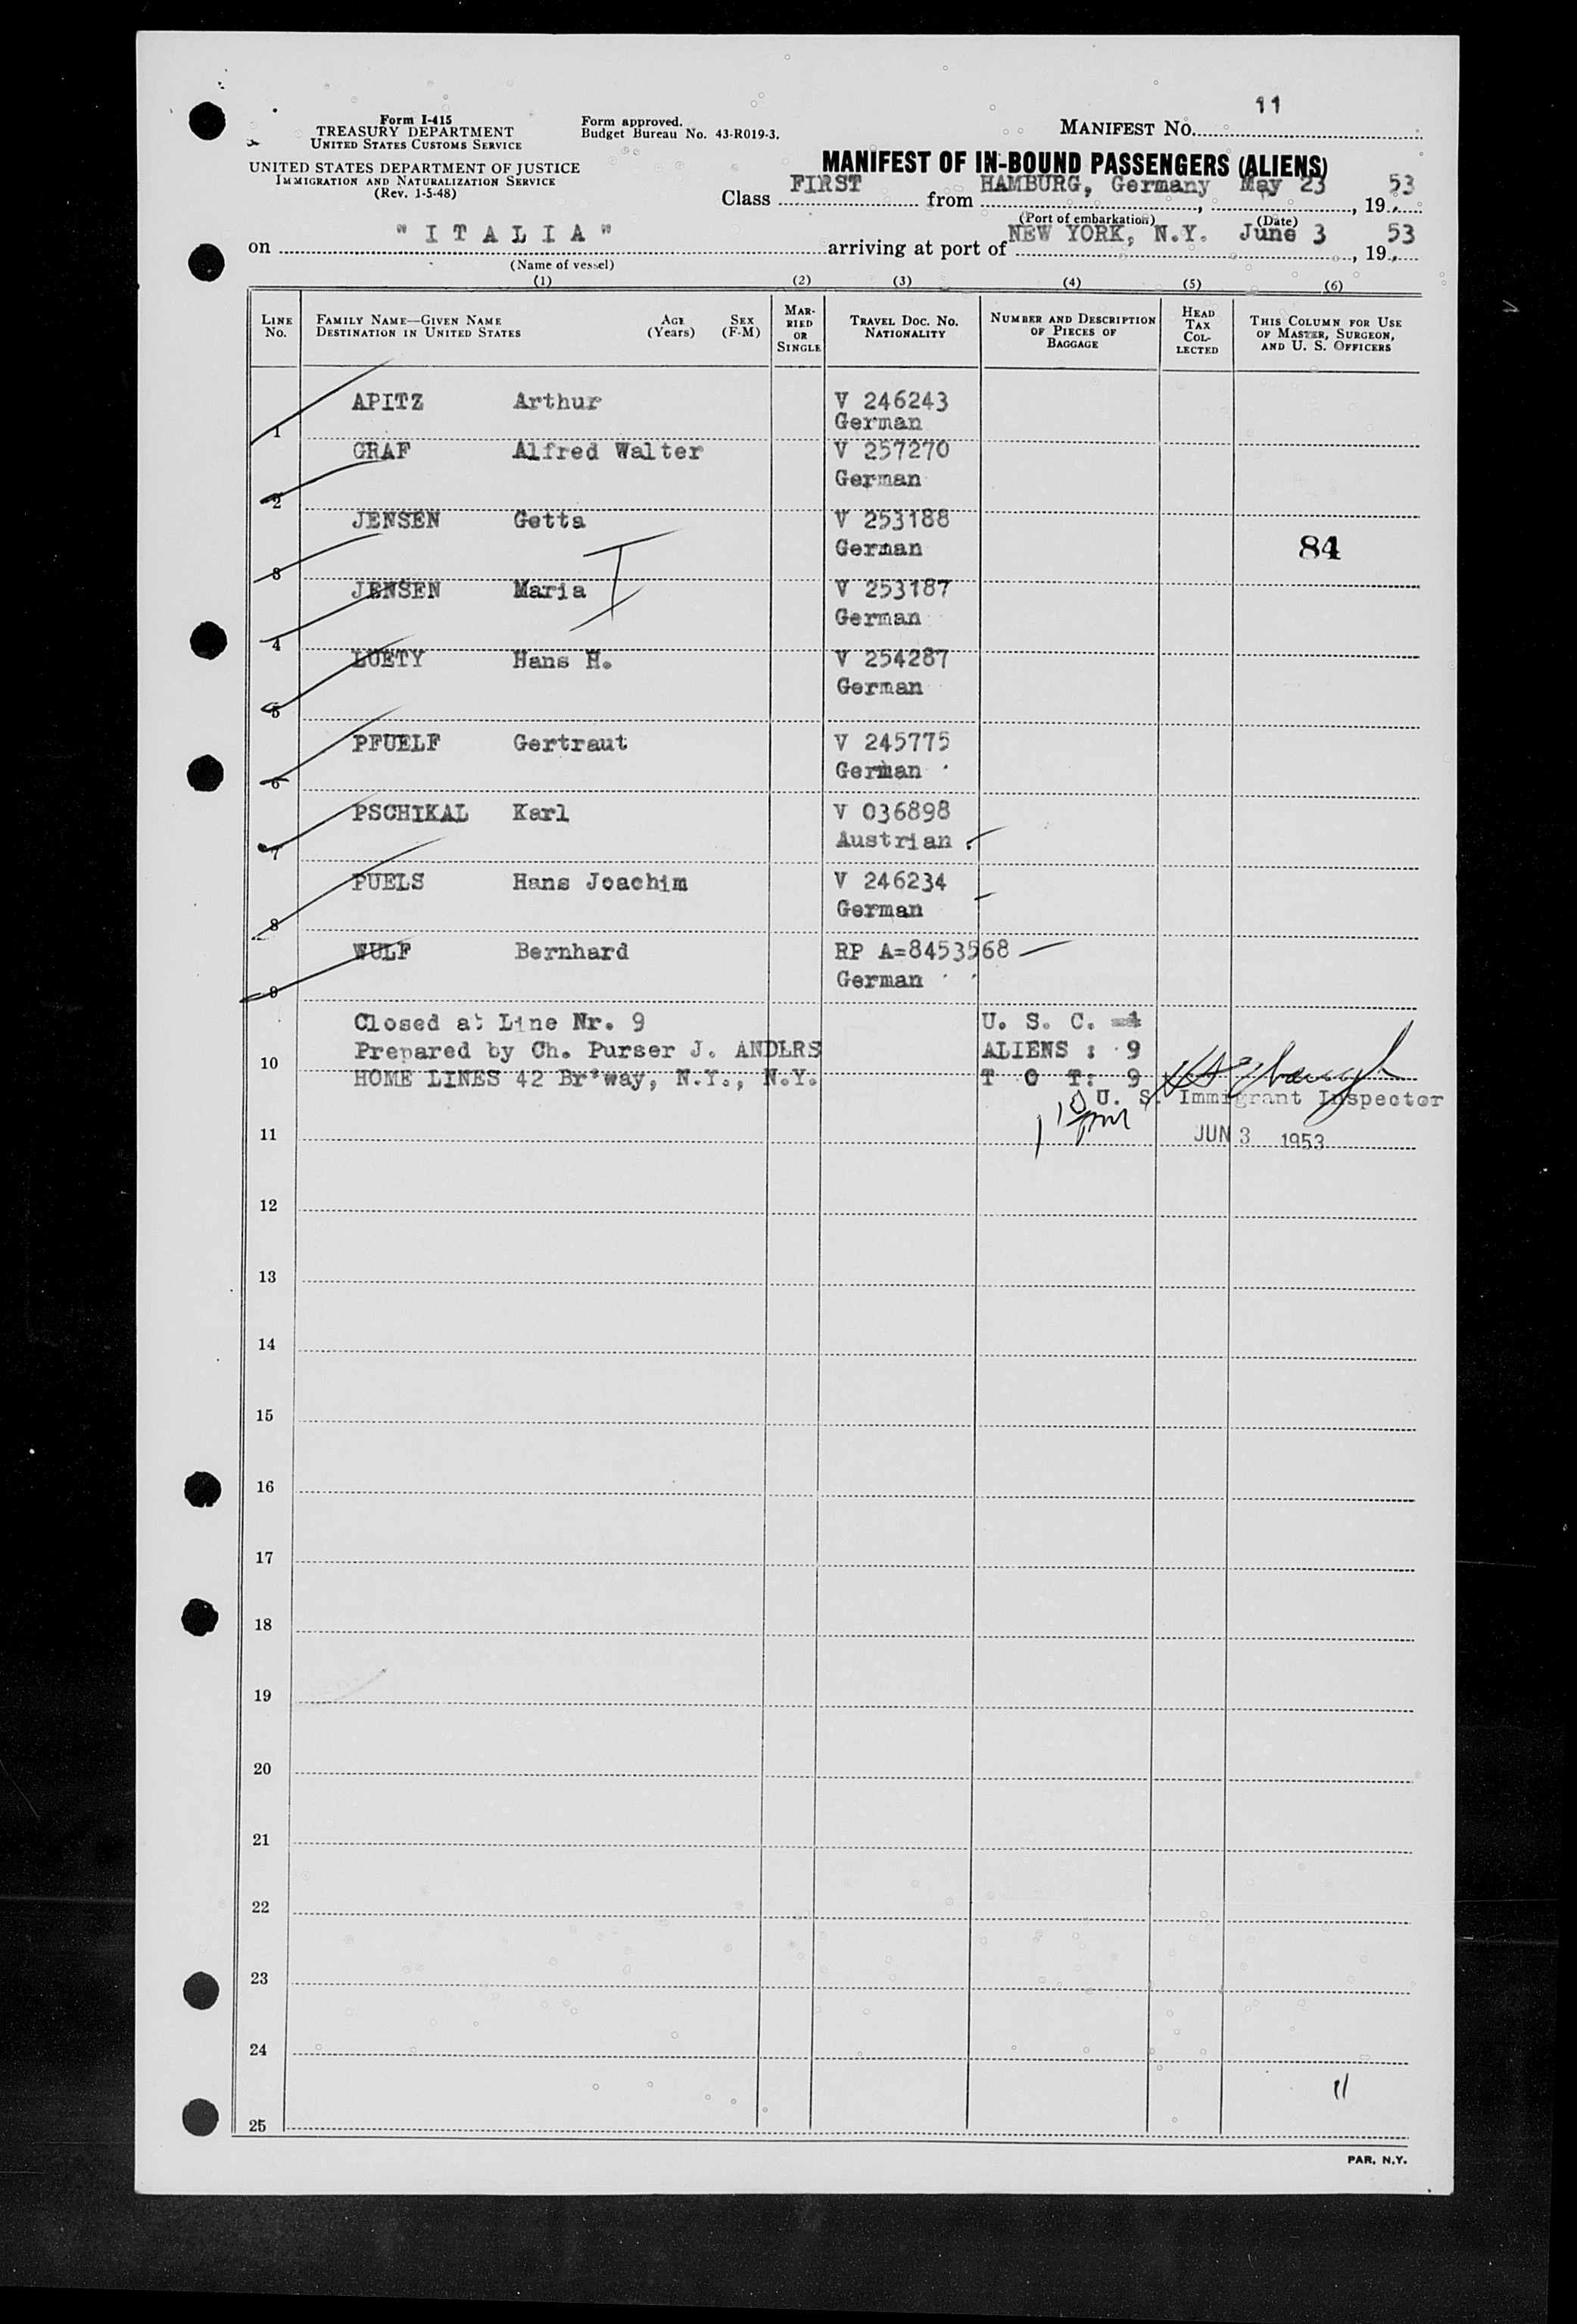 11
Form I-415
TREASURY DEPARTMENT
UNITED STATES CUSTOMS SERVICE
Form approved.
Budget Bureau No. 43-R019-3.
MANIFEST No.
UNITED STATES DEPARTMENT OF JUSTICE
IMMIGRATION AND NATURALIZATION SERVICE
(Rev. 1-5-48)
MANIFEST OF IN-BOUND PASSENGERS (ALIENS)
Class FIRST from HAMBURG, Germany, May 23, 1953
(Port of embarkation) (Date)
on "ITALIA" arriving at port of NEW YORK, N.Y. June 3, 1953
(Name of vessel)
(1) (2) (3) (4) (5) (6)
LINE No.
FAMILY NAME—GIVEN NAME
DESTINATION IN UNITED STATES
AGE (Years)
SEX (F-M)
MARRIED OR SINGLE
TRAVEL DOC. NO.
NATIONALITY
NUMBER AND DESCRIPTION OF PIECES OF BAGGAGE
HEAD TAX COLLECTED
THIS COLUMN FOR USE OF MASTER, SURGEON, AND U. S. OFFICERS
1 APITZ Arthur V 246243
German
2 GRAF Alfred Walter V 257270
German
3 JENSEN Getta V 253188
German
84
4 JENSEN Maria V 253187
German
5 LUETY Hans H. V 254287
German
6 PFUELF Gertraut V 245775
German
7 PSCHIKAL Karl V 036898
Austrian
8 PUELS Hans Joachim V 246234
German
9 WULF Bernhard RP A=8453568
German
Closed at Line Nr. 9 U. S. C.
10 Prepared by Ch. Purser J. ANDLRS ALIENS : 9
HOME LINES 42 Br'way, N.Y., N.Y. T O T: 9
U. S. Immigrant Inspector
11 JUN 3 1953
12
13
14
15
16
17
18
19
20
21
22
23
24
11
25
PAR. N.Y.